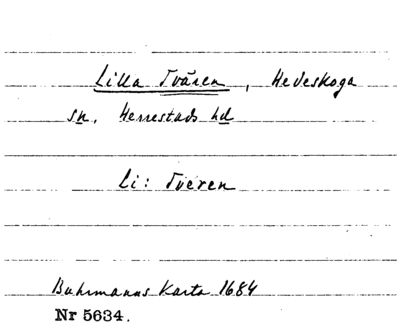 Lilla Tvären, Hedeskoga
sn, Herrestads hd
Li: Tveren
Buhrmanns Karta 1684
Nr 5634.